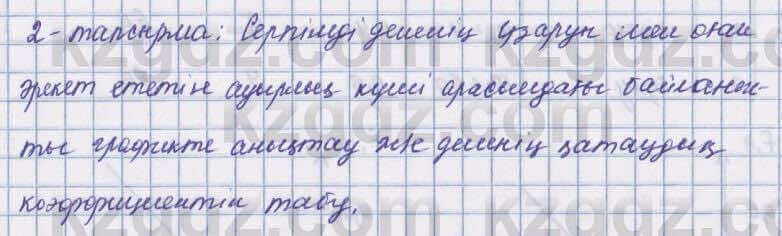 2-тапсырма: Серпімді дененің ұзаруы мен оған
әрекет ететін ауырлық күші арасындағы байланыс-
ты графикте анықтау және дененің қатаудық
коэффициентін табу.